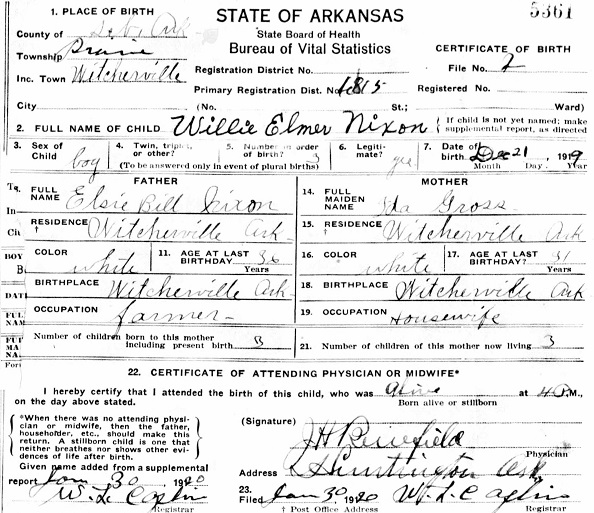 1. PLACE OF BIRTH
STATE OF ARKANSAS
5361
County of Ark
State Board of Health
Township Prairie
Bureau of Vital Statistics
CERTIFICATE OF BIRTH
Inc. Town Witcherville
Registration District No.
File No. 2
Primary Registration Dist. No. 1815
Registered No.
City (No. St.; Ward)
2. FULL NAME OF CHILD Willie Elmer Nixon { If child is not yet named; make supplemental report, as directed
3. Sex of Child boy
4. Twin, triplet, or other?
5. Number in order of birth? 3
(To be answered only in event of plural births)
6. Legitimate? yes
7. Date of birth Dec 21, 1919
Month Day, Year
FATHER
MOTHER
FULL NAME Elsie Bill Nixon
14. FULL MAIDEN NAME Ida Gross
RESIDENCE † Witcherville Ark
15. RESIDENCE † Witcherville Ark
COLOR white
11. AGE AT LAST BIRTHDAY 36 Years
16. COLOR white
17. AGE AT LAST BIRTHDAY? 31 Years
BIRTHPLACE Witcherville Ark
18. BIRTHPLACE Witcherville Ark
OCCUPATION farmer
19. OCCUPATION Housewife
Number of children born to this mother including present birth
21. Number of children of this mother now living 3
22. CERTIFICATE OF ATTENDING PHYSICIAN OR MIDWIFE*
I hereby certify that I attended the birth of this child, who was alive at 4 P.M.,
on the day above stated.
Born alive or stillborn
*When there was no attending physician or midwife, then the father,
householder, etc., should make this
return. A stillborn child is one that
neither breathes nor shows other evidences of life after birth.
(Signature)
Physician
Given name added from a supplemental
report Jan 30 1920
Address Huntington Ark
W. L. Caplin
Registrar
23.
Filed Jan 30, 1920 W. L. Caplin
† Post Office Address
Registrar